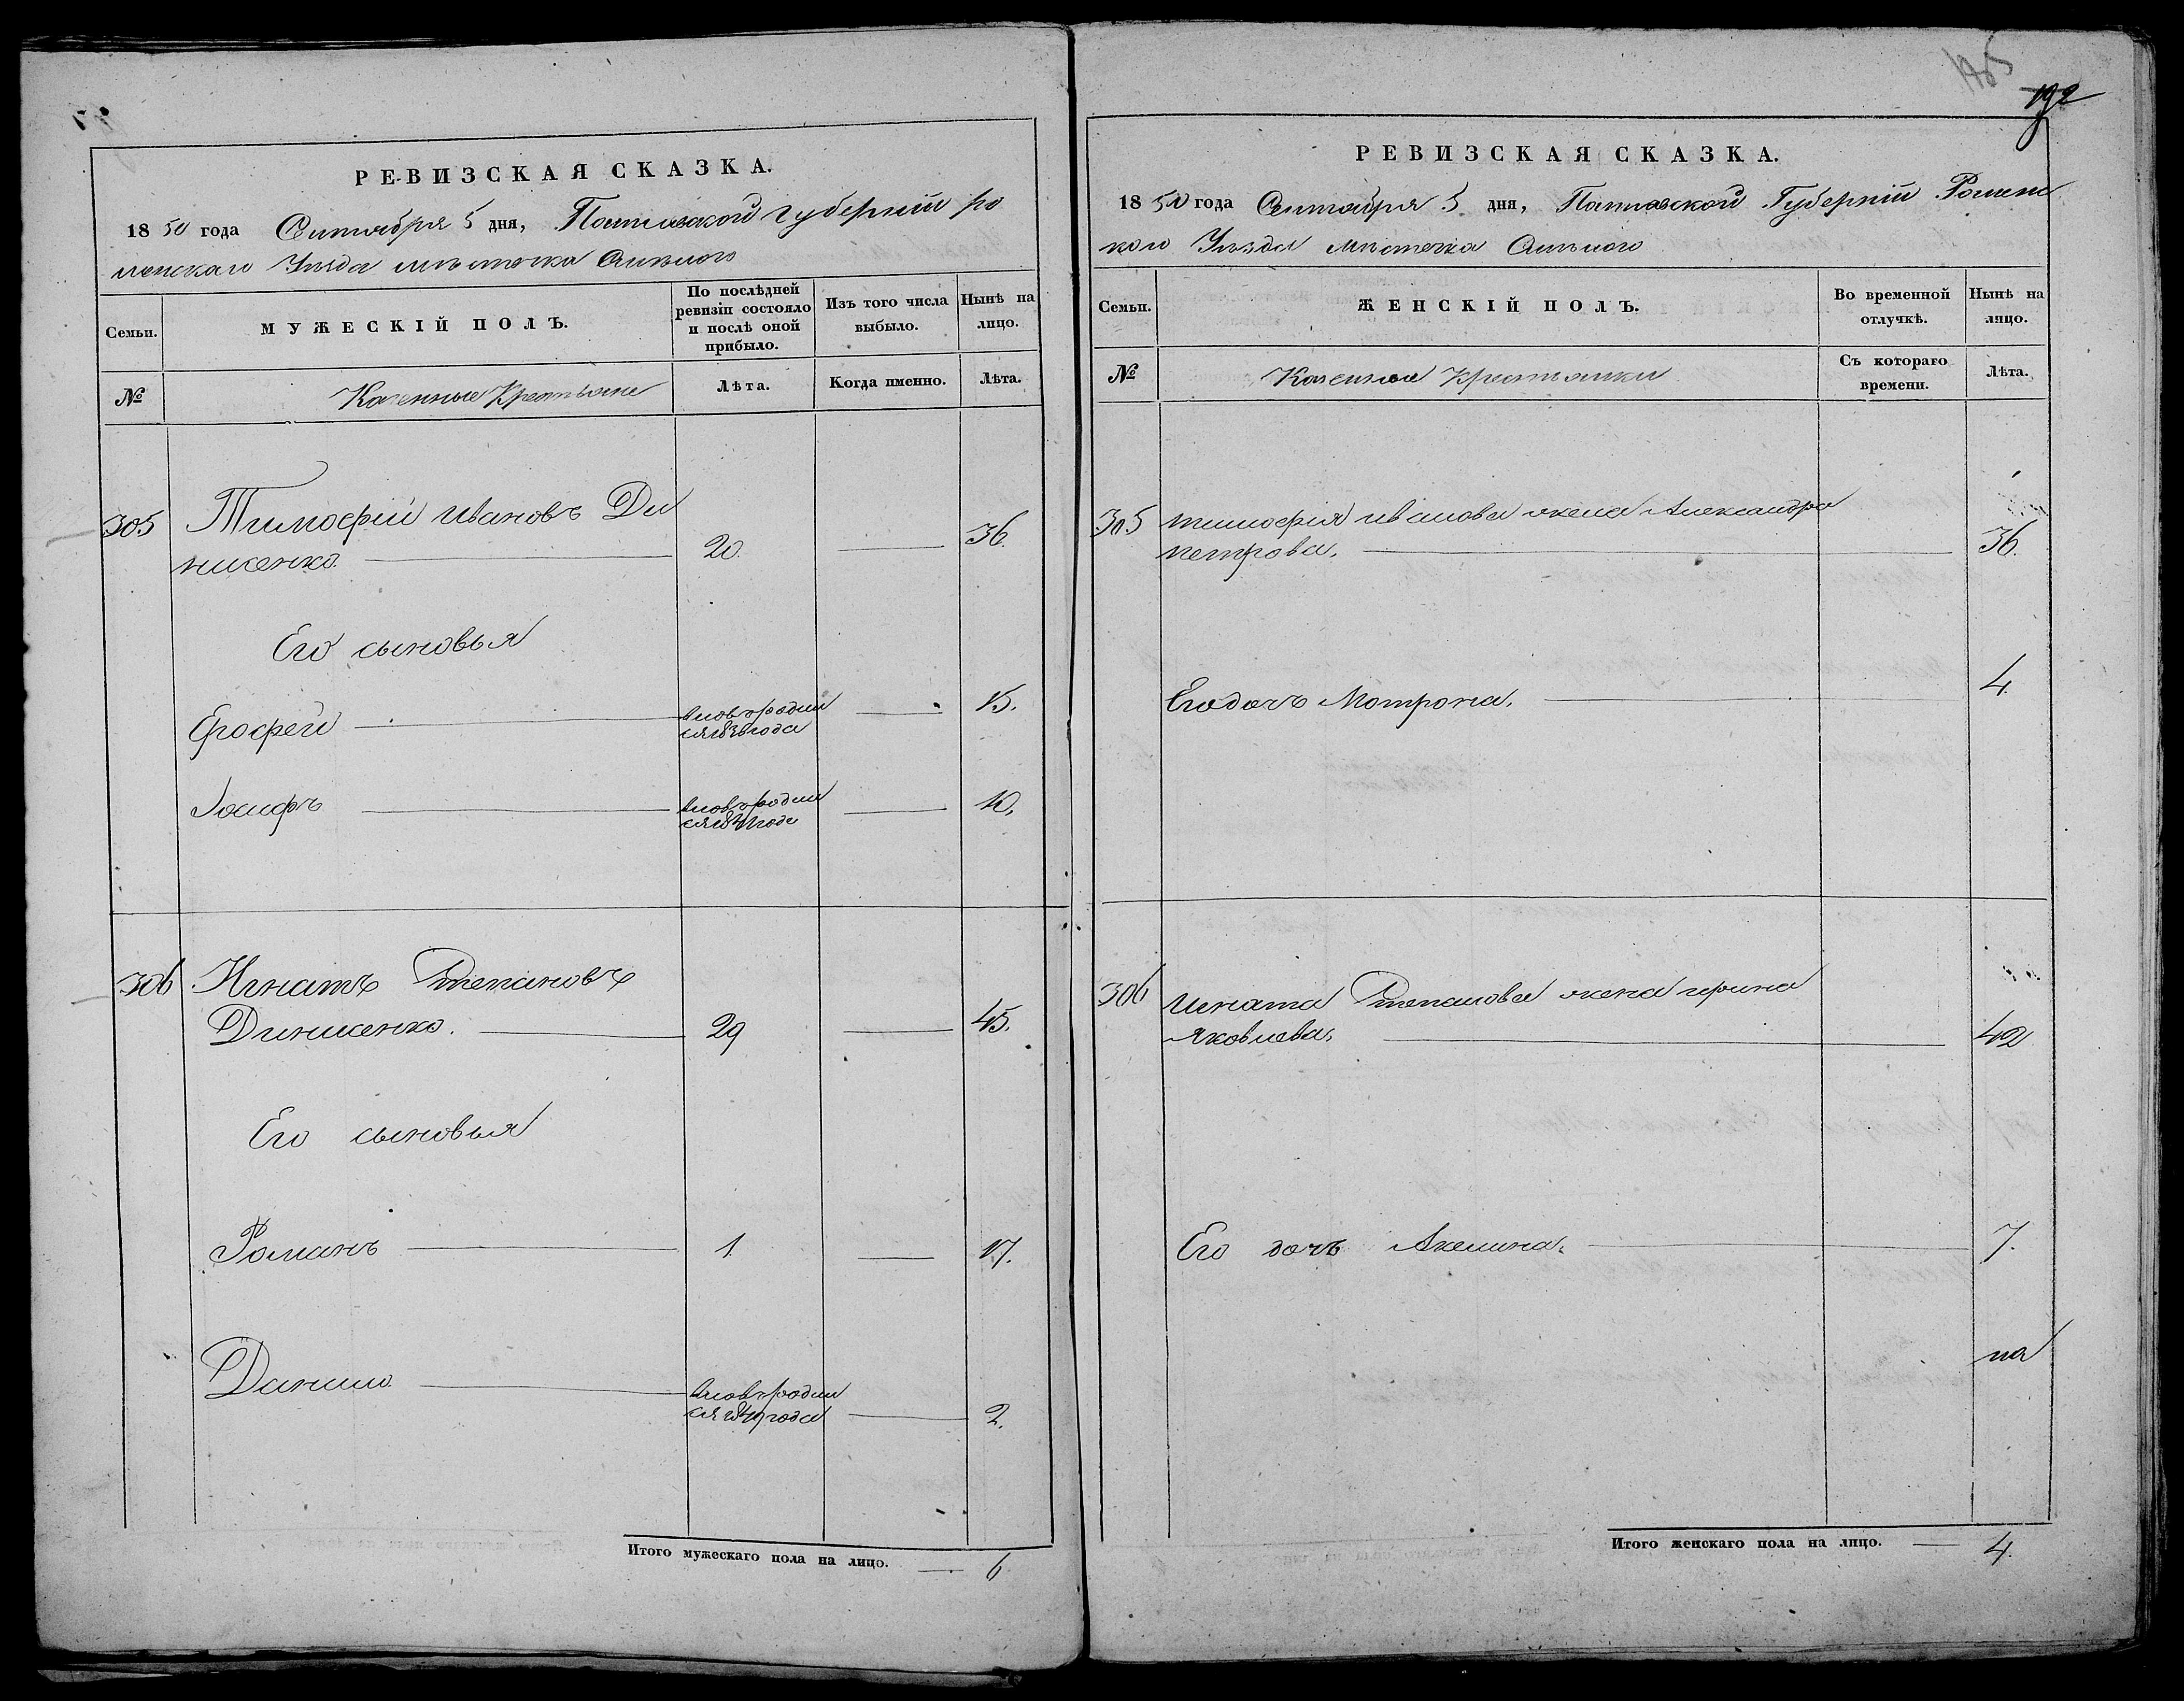 192
РЕВИЗСКАЯ СКАЗКА.
1850 года Сентября 5 дня, Полтавской губернии Ро
менскаго Уѣзда мѣстечка Смѣлого
Семьи.
МУЖЕСКІЙ ПОЛЪ.
По послѣдней ревизіи состояло и послѣ оной прибыло.
Изъ того числа выбыло.
Нынѣ на лицо.
№
Казенные Крестьяне
Лѣта.
Когда именно.
Лѣта.
305 Тимофій Ивановъ Ди
нисенко. 20. 36.
Его сыновья
Ерофей вновь родил 15.
ся 1836 года
Іосифъ вновь родил 10.
ся 1841 года
306 Игнатъ Степановъ
Динисенко. 29 45.
Его сыновья
Романъ 1 17.
Данило вновь родил
ся 1849 года 2.
Итого мужескаго пола на лицо. 6
РЕВИЗСКАЯ СКАЗКА.
1850 года Сентября 5 дня, Полтавской Губерніи Роменс
кого Уѣзда мѣстечка Смѣлого
Семьи.
ЖЕНСКІЙ ПОЛЪ.
Во временной отлучкѣ.
Нынѣ на лицо.
№
Казенные Крестьянки
Съ котораго времени.
Лѣта.
305 Тимофія иванова жена Александра
петрова. 36.
Его дочь Мотрона. 4
306 Игната Степанова жена ирина
Яковлева. 42
Его дочь Акилина. 7.
на
Итого женскаго пола на лицо. 4.